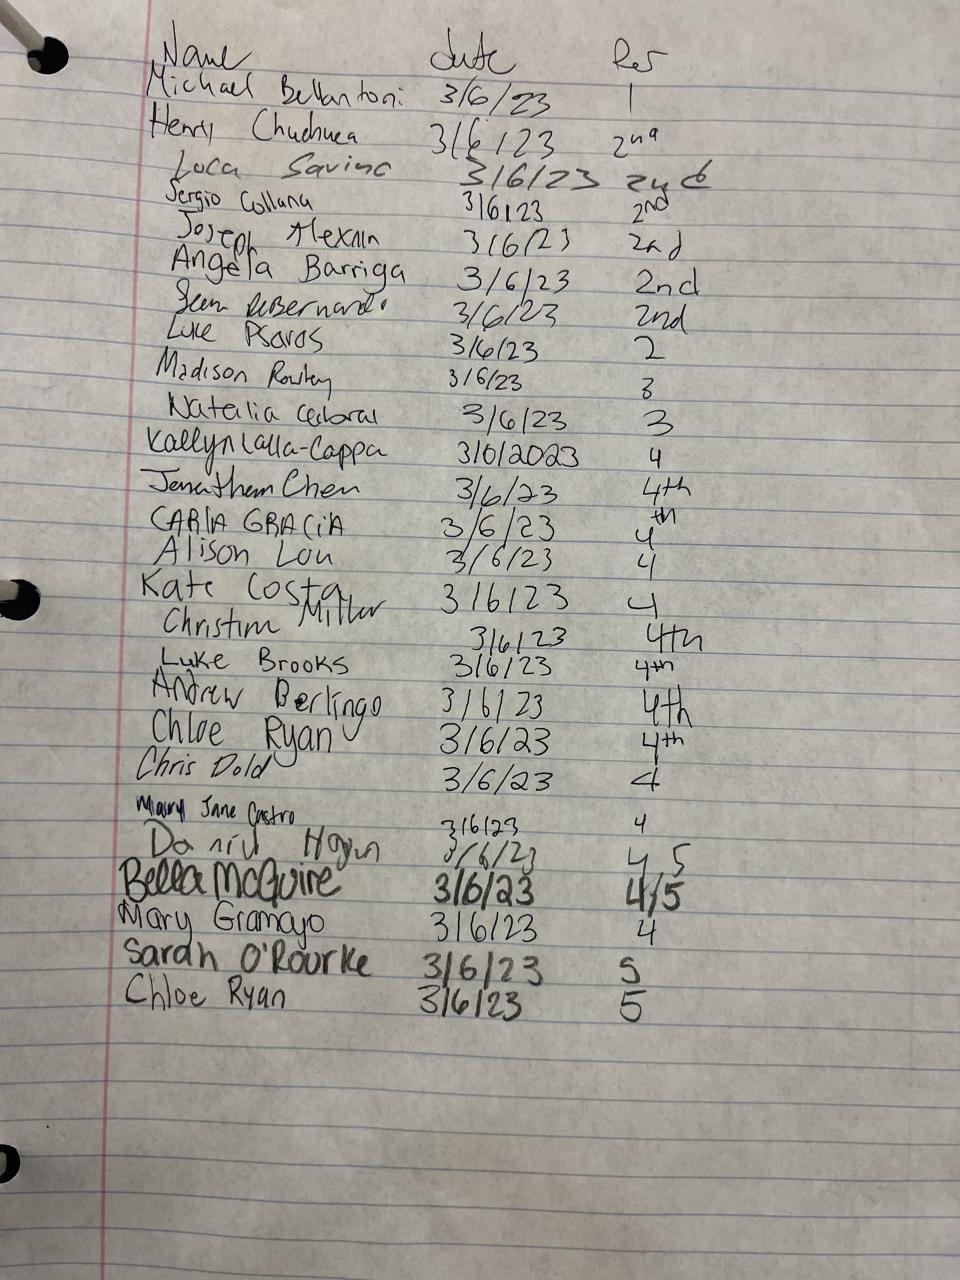 Name date Per
Michael Bellantoni 3/6/23 1
Henry 3/6/23 2nd
Luca Savino 3/6/23 2nd
Sergio Collana 3/6/23 2nd
Joseph 3/6/23 2nd
Angela Barriga 3/6/23 2nd
Sean DeBernardo 3/6/23 2nd
Luke Psaros 3/6/23 2
Madison Rowley 3/6/23 3
Natalia 3/6/23 3
Kallyn Lalla-Cappa 3/6/2023 4
Jonathan Chen 3/6/23 4th
CARlA GRACiA 3/6/23 4th
Alison Lou 3/6/23 4
Kate Costa 3/6/23 4
Christina Miller 3/6/23 4th
Luke Brooks 3/6/23 4th
Andrew Berlingo 3/6/23 4th
Chloe Ryan 3/6/23 4th
Chris Dold 3/6/23 4
Mary Jane Castro 3/6/23 4
Daniel Hogan 3/6/23 4 5
Bella McGuire 3/6/23 4/5
Mary Gramajo 3/6/23 4
Sarah O'Rourke 3/6/23 5
Chloe Ryan 3/6/23 5